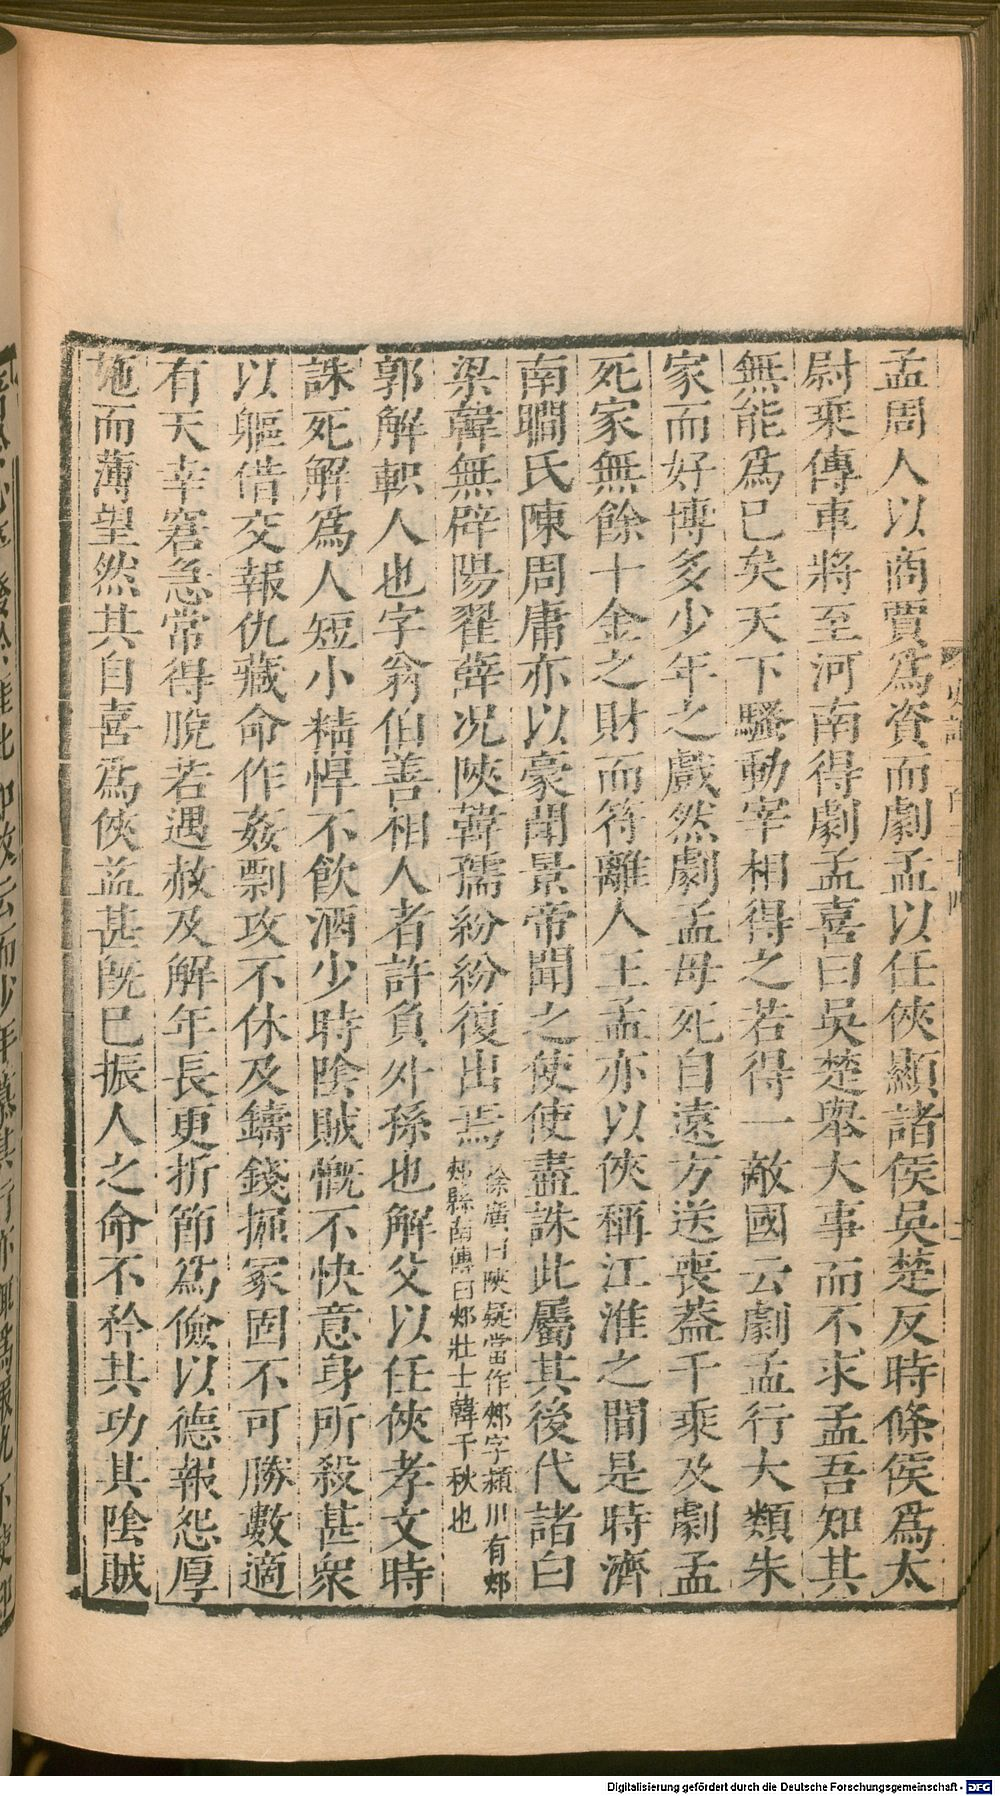 孟周人以商賈爲資而劇孟以任俠顯諸侯吳楚反時條侯爲太
尉乘傳車將至河南得劇孟喜曰吳楚舉大事而不求孟吾知其
無能爲已矣天下騷動宰相得之若得一敵國云劇孟行大類朱
家而好博多少年之戲然劇孟母死自遠方送喪蓋千乘及劇孟
死家無餘十金之財而符離人王孟亦以俠稱江淮之間是時濟
南瞷氏陳周庸亦以豪聞景帝聞之使使盡誅此屬其後代諸白
梁韓無辟陽翟薛况陜韓孺紛紛復出焉
徐廣曰陜疑當作郟字潁川有郟
郟縣南傳曰郟壯士韓千秋也
郭解軹人也字翁伯善相人者許負外孫也解父以任俠孝文時
誅死解爲人短小精悍不飮酒少時陰賊慨不快意身所殺甚衆
以軀借交報仇藏命作姦剽攻不休及鑄錢掘冢固不可勝數適
有天幸窘急常得脫若遇赦及解年長更折節爲儉以德報怨厚
施而薄望然其自喜爲俠益甚旣已振人之命不矜其功其陰賊
Digitalisierung gefördert durch die Deutsche Forschungsgemeinschaft - DFG